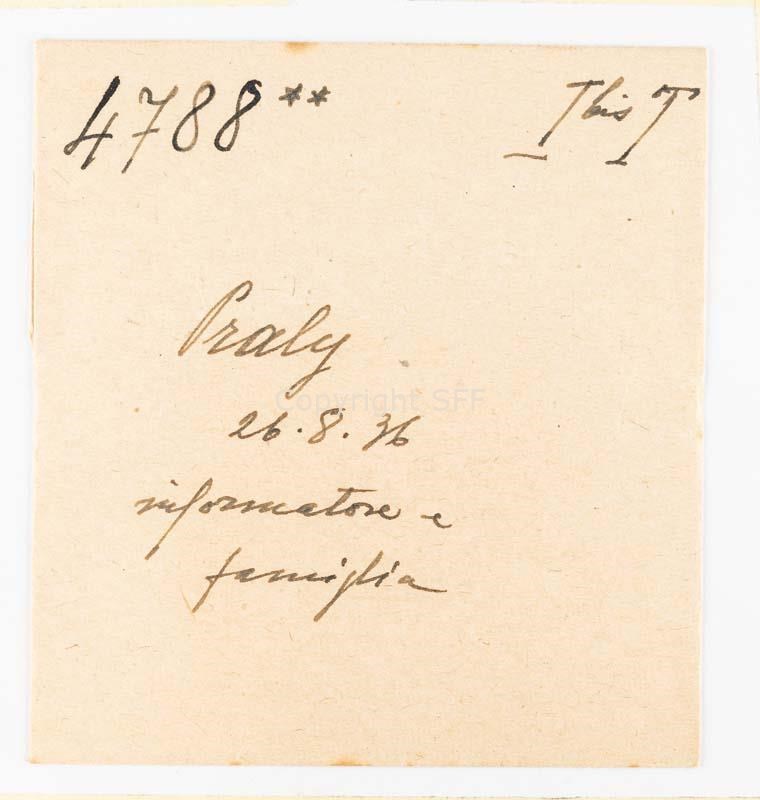 4788** I bis T
Praly
Copyright SFF
26.8.36
informatore e
famiglia